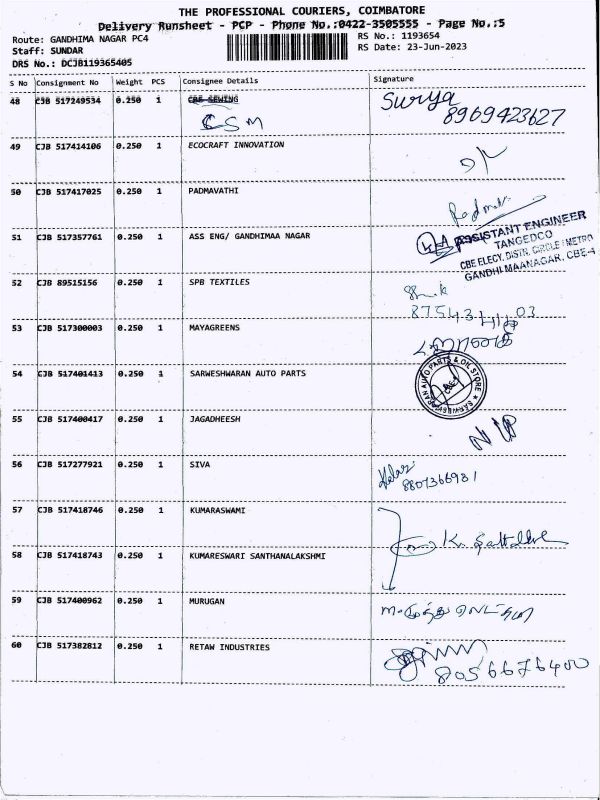 THE PROFESSIONAL COURIERS, COIMBATORE
Delivery Runsheet - PCP - Phone No.:0422-3505555 - Page No.:5
Route: GANDHIMA NAGAR PC4
RS No.: 1193654
Staff: SUNDAR
RS Date: 23-Jun-2023
DRS No.: DCJB119365405
S No Consignment No Weight PCS Consignee Details Signature
48 CJB 517249534 0.250 1 CBE SEWING Surya
CSM 8969423627
49 CJB 517414106 0.250 1 ECOCRAFT INNOVATION
50 CJB 517417025 0.250 1 PADMAVATHI
51 CJB 517357761 0.250 1 ASS ENG/ GANDHIMAA NAGAR
ASSISTANT ENGINEER
TANGEDCO
CBE ELECY. DISTR. CIRCLE / METRO
GANDHI MAANAGAR, CBE-4
52 CJB 89515156 0.250 1 SPB TEXTILES
53 CJB 517300003 0.250 1 MAYAGREENS
54 CJB 517401413 0.250 1 SARWESHWARAN AUTO PARTS
55 CJB 517400417 0.250 1 JAGADHEESH
56 CJB 517277921 0.250 1 SIVA
8807366931
57 CJB 517418746 0.250 1 KUMARASWAMI
58 CJB 517418743 0.250 1 KUMARESWARI SANTHANALAKSHMI
59 CJB 517400962 0.250 1 MURUGAN
60 CJB 517382812 0.250 1 RETAW INDUSTRIES
8056676400